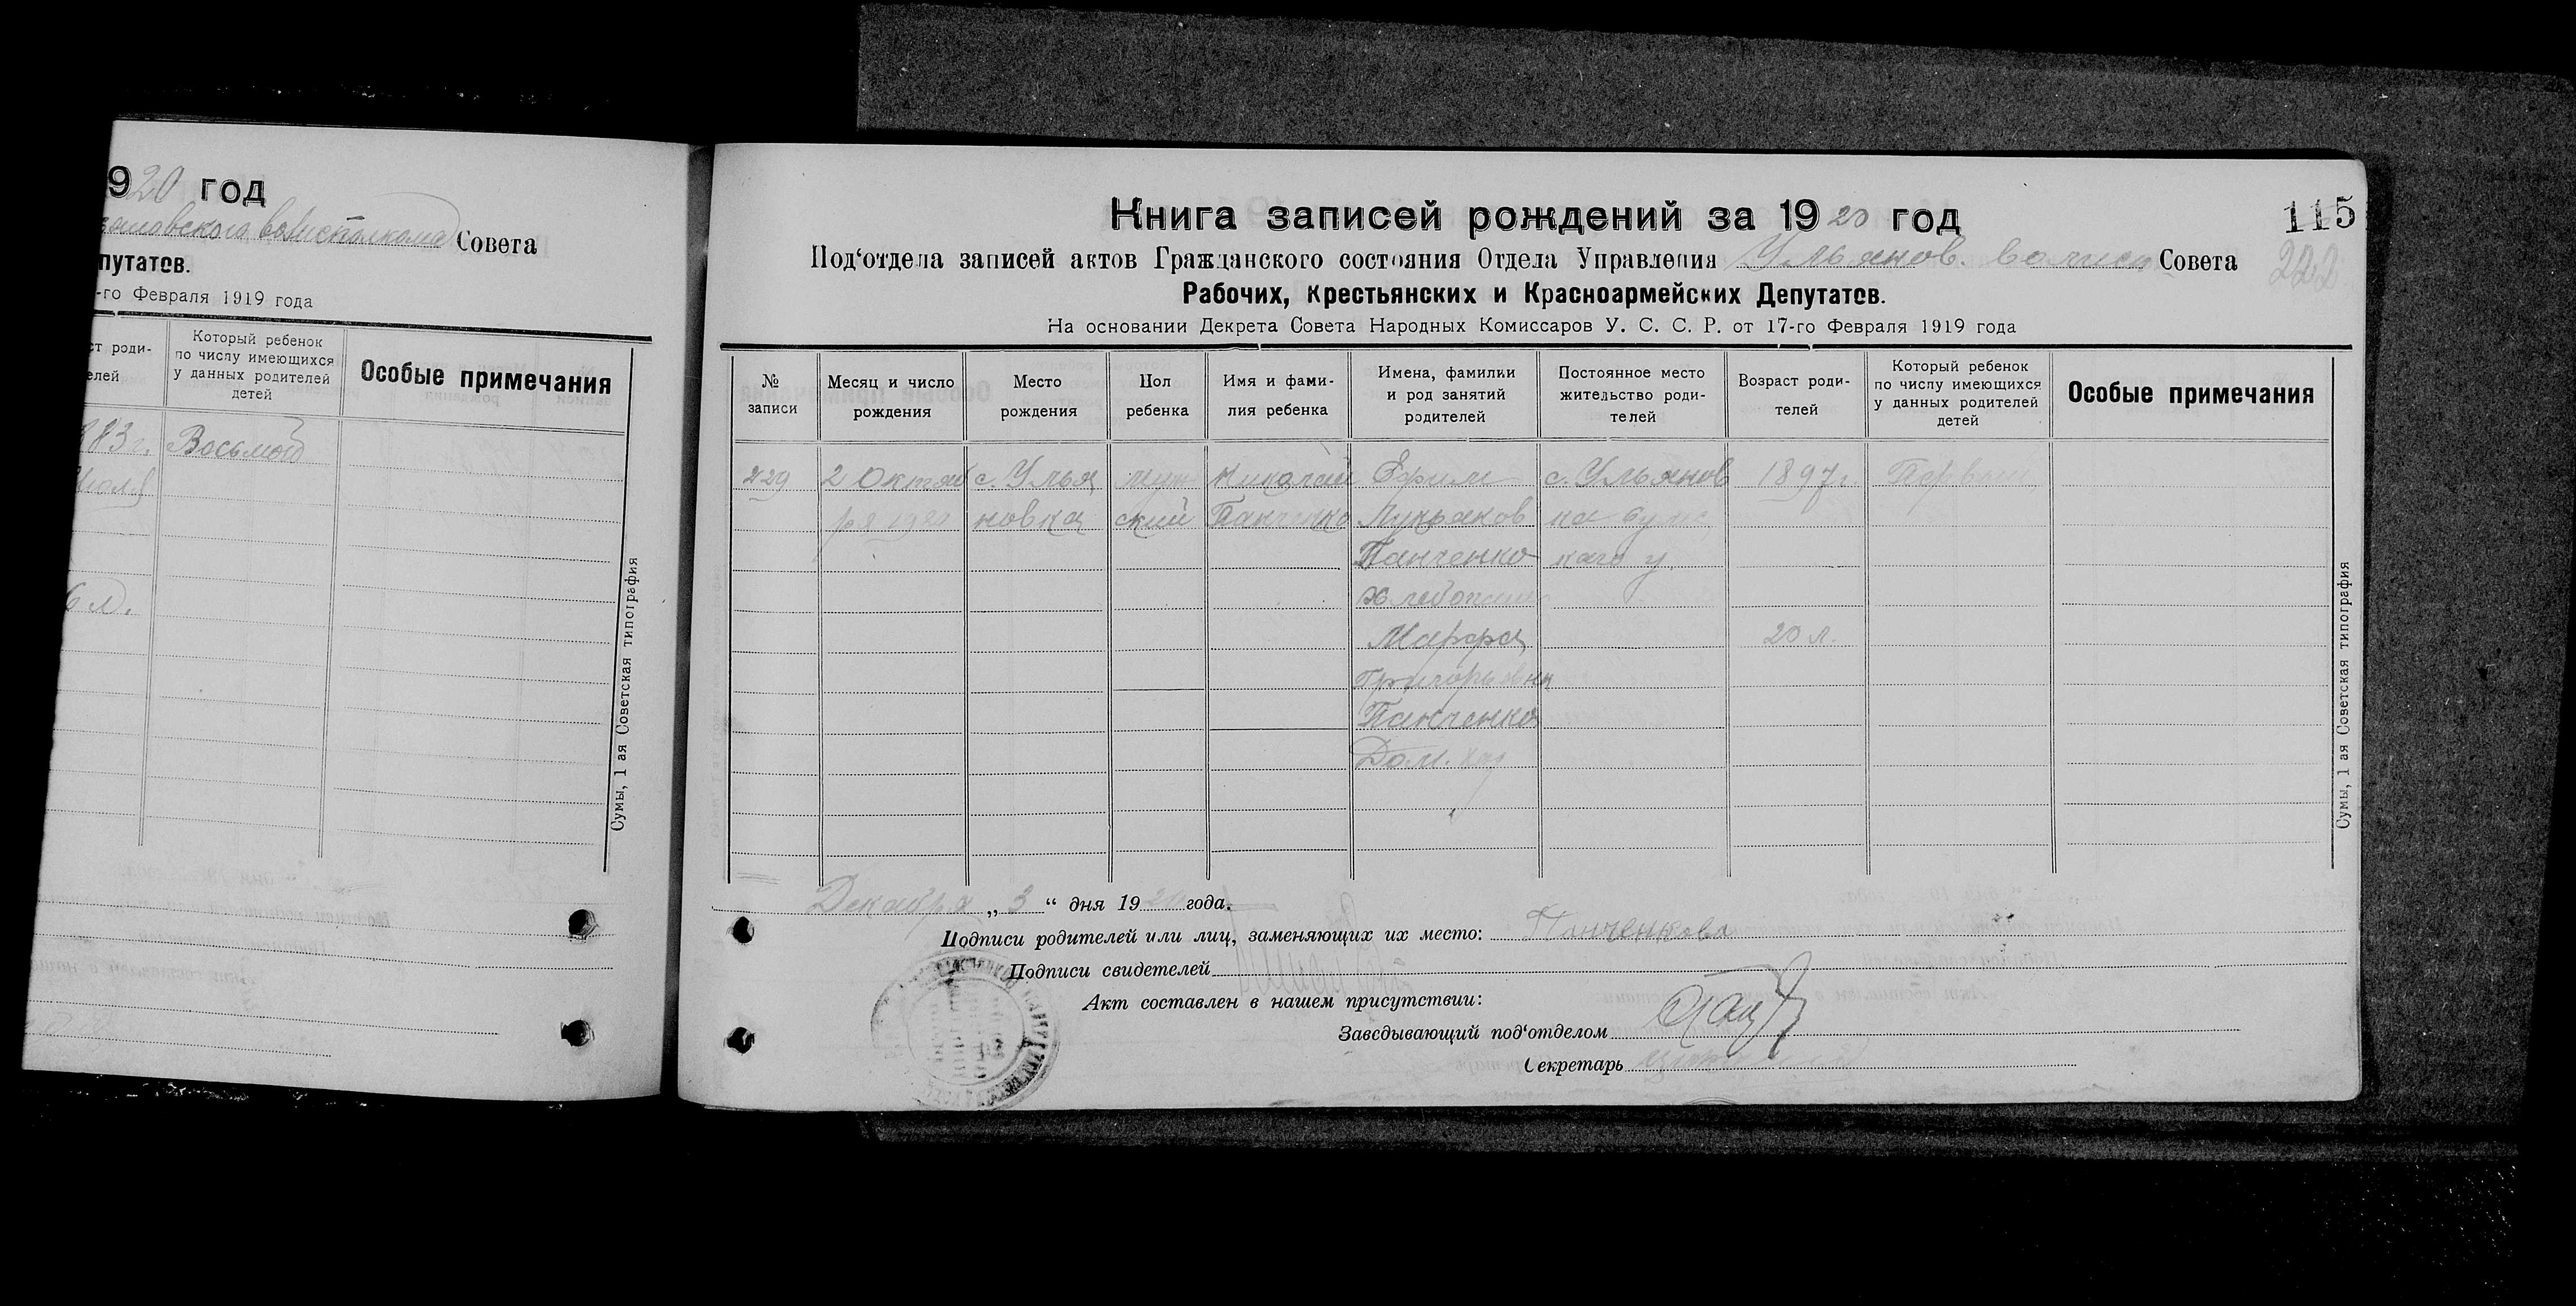 920 год
Совета
путатов.
-го Февраля 1919 года
ст роди-
елей
Который ребенок
по числу имеющихся
у данных родителей
детей
Особые примечания
883 г. Восьмой
Июля
6 л.
Сумы, 1 ая Советская типография
Книга записей рождений за 1920 год
115
Под‘отдела записей актов Гражданского состояния Отдела Управления Ульянов. Совета
222
Рабочих, Крестьянских и Красноармейских Депутатов.
На основании Декрета Совета Народных Комиссаров У. С. С. Р. от 17-го Февраля 1919 года
№
записи
Месяц и число
рождения
Место
рождения
Пол
ребенка
Имя и фами-
лия ребенка
Имена, фамилии
и род занятий
родителей
Постоянное место
жительство роди-
телей
Возраст роди-
телей
Который ребенок
по числу имеющихся
у данных родителей
детей
Особые примечания
229 2 Октяб с. Улья муж Николай Ефим с. Ульянов 1897 г. Первый
ря 1920 новка ский Панченко Лукьянов ка
Панченко каго у.
Хлебопаш
Марфа 20 л.
Григорьевна
Панченко
Дом. хоз
Сумы, 1 ая Советская типография
Декабря „ 3 “ дня 1920 года.
Подписи родителей или лиц, заменяющих их место: Панченкова
Подписи свидетелей
Акт составлен в нашем присутствии:
Заведывающий под‘отделом
Секретарь